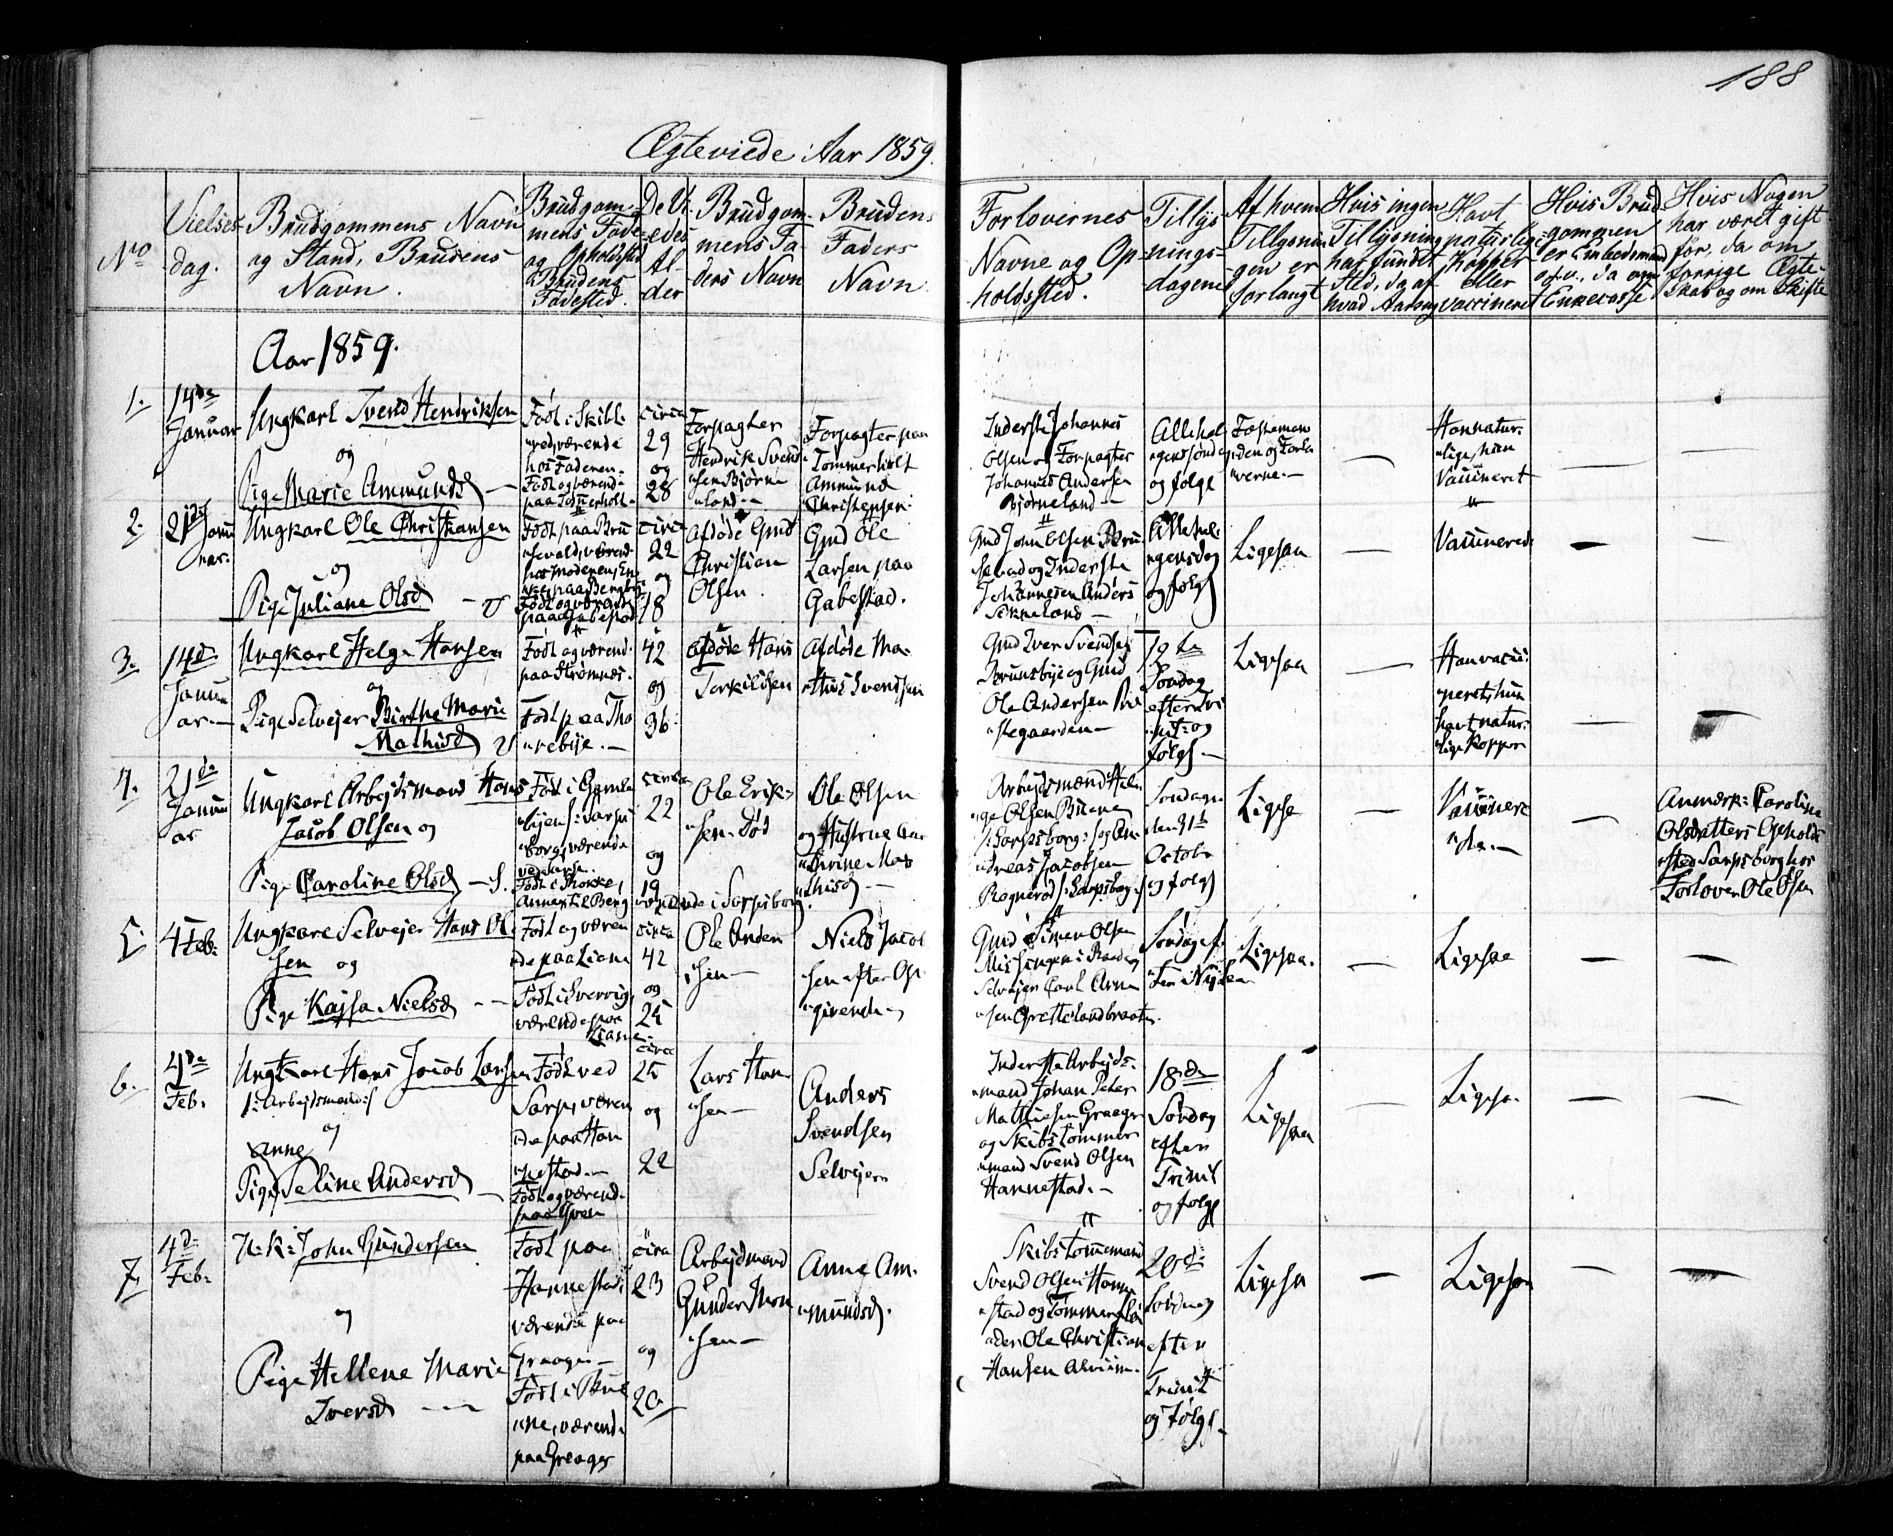 188
Ægteviede Aar 1859.
No
Vielses-
dag.
Brudgommens Navn
og Stand, Brudens
Navn.
Brudgom-
mens Føde
og Opholdsted
Brudens
Fødested.
De Vi-
edes
Al-
der
Brudgom-
mens Fa-
ders Navn
Brudens
Faders
Navn
Forlovernes
Navne og Op-
holdssted.
Tillys-
nings-
dagene
Af hvem
Tillysnin-
gen er
forlangt
Hvis ingen
Tillysning
har fundet
Sted, da af
hvad Aarsag
Havt
naturlige
Kopper
eller
vaccineret
Hvis Brud-
gommen
er Embedsmand
o.s.v., da om
Enkecasse
Hvis Nogen
har været gift
før, da om
forrige Ægte-
skab og om Skifte
Aar 1859.
1.
14de
Januar
Ungkarl Svend Hendriksen
og
Pige Marie Amundsd
Født i Skibt-
værende
hos Faderen.
Født og værend-
paa Tommerholt
circa
29
og
28
Forpagter
Hendrik Svend-
sen Bjørne
land
Forpagter paa
Tommerholt
Amund
Christensen.
Inderst Johannes
Olsen og Forpagter
Johannes Andersen
Bjørneland
Allehel-
gens søndag
og følge
Fæsteman-
den og Forlo-
verne.
Han natur-
lige, hun
Vaccineret
2.
21de Janu
nar.
Ungkarl Ole Christiansen
og
Pige Juliane Olsd
Født paa Bru
sevald, værend
hos Moderen, En
Født og værend
circa
22
og
18
Afdøde Gmd
Christian
Olsen.
Gmd Ole
Larsen paa
Gabestad.
Gmd John Olsen Bru-
sevad og Inderste
Johannesen Anders
Allehel-
gensdag
og følg
Ligesaa
Vaccinerede
3.
14d
Janu
ar.
Ungkarl Helge Hansen
og
Pige Selvejer Birthe Marie
Mathisd
Født og værend.
paa Strømnes.
Født paa Tho
rebye.
42
og
36
Afdøde Hans
Torkildsen
Afdøde Ma-
this Svendsen
Gmd Iver Svendsen
Brunsbye og Gmd
Ole Andersen Præ
stegaarden
19de
Søndag
efter Tri
nit. og
følg.
Ligesaa
Han vacci-
neret, hun
havt natur-
lige Kopper
4.
21de
Janu
ar
Ungkarl Arbejdsmand Hans
Jacob Olsen og
Pige Caroline Olsd
Født i Gamle
byen i Sarps
borg, værende
ved Sarpe.
Født i Skokke,
Annex til Berg værende i Sarpsborg.
circa
22
og
19
Ole Erik-
sen. Død
Ole Olsen
og Hustrue Ca
thrine Ma
thisd.
Arbejdsmænd Hel-
ge Olsen
Sarpsborg og An-
dreas Jacobsen
Ragnerød Sarpsborg
Søndagen
den 31te
Octobr
og følg
Ligesaa
Vaccinere
de.
Anmærk: Caroline
Olsdatters Ophold-
sted Sarpsborg hos
Forlover Ole Olsen
5.
4 Feb.
Ungkarl Selvejer Hans Ol-
sen og
Pige Kajsa Nielsd
Født og væren
de paa Liane
Født i Sverrig,
værende paa
Liane
circa
42
og
25
Ole Ander
sen
Niels Jacob
sen efter Op-
givende
Gmd Simen Olsen
Selvejer Carl Arne
sen Grettelandbraaten.
Søndag ef-
ter Nytaar
Ligesaa.
Ligesaa
6.
4de
Feb.
Ungkarl Hans Jacob Larsen
/: Arbejdsmand :/
og
Anne
Pige Seline Andersd
Født ved
Sarp, væren
de paa Han
nestad
Født og værend.
paa Gren
circa
25
og
22
Lars Han-
sen
Anders
Svendsen
Selvejer
Inderste Arbejds-
mand Johan Peter
Mathiesen Graager
og Skibstømmer
mand Svend Olsen
Hannestad.
18de
Søndag
efter
Trinit
og følge
Ligesaa
Ligesaa
7.
4d
Feb.
U: K: John Gundersen
og
Pige Hellene Marie
Iversd
Født paa
Hannestad,
værende paa
Graager
Født i Thu
ne, værend.
paa Greager
circa
23
og
20
Arbejdsmand
Gunder Iver
sen
Anne Am-
mundsd.
Skibstømmermand
Svend Olsen Hanne
stad og Tømmerflø
der Ole Christian
Hansen Alvim.
20de
Søndag
efter
Trinit
og følge.
Ligesaa
Ligesaa